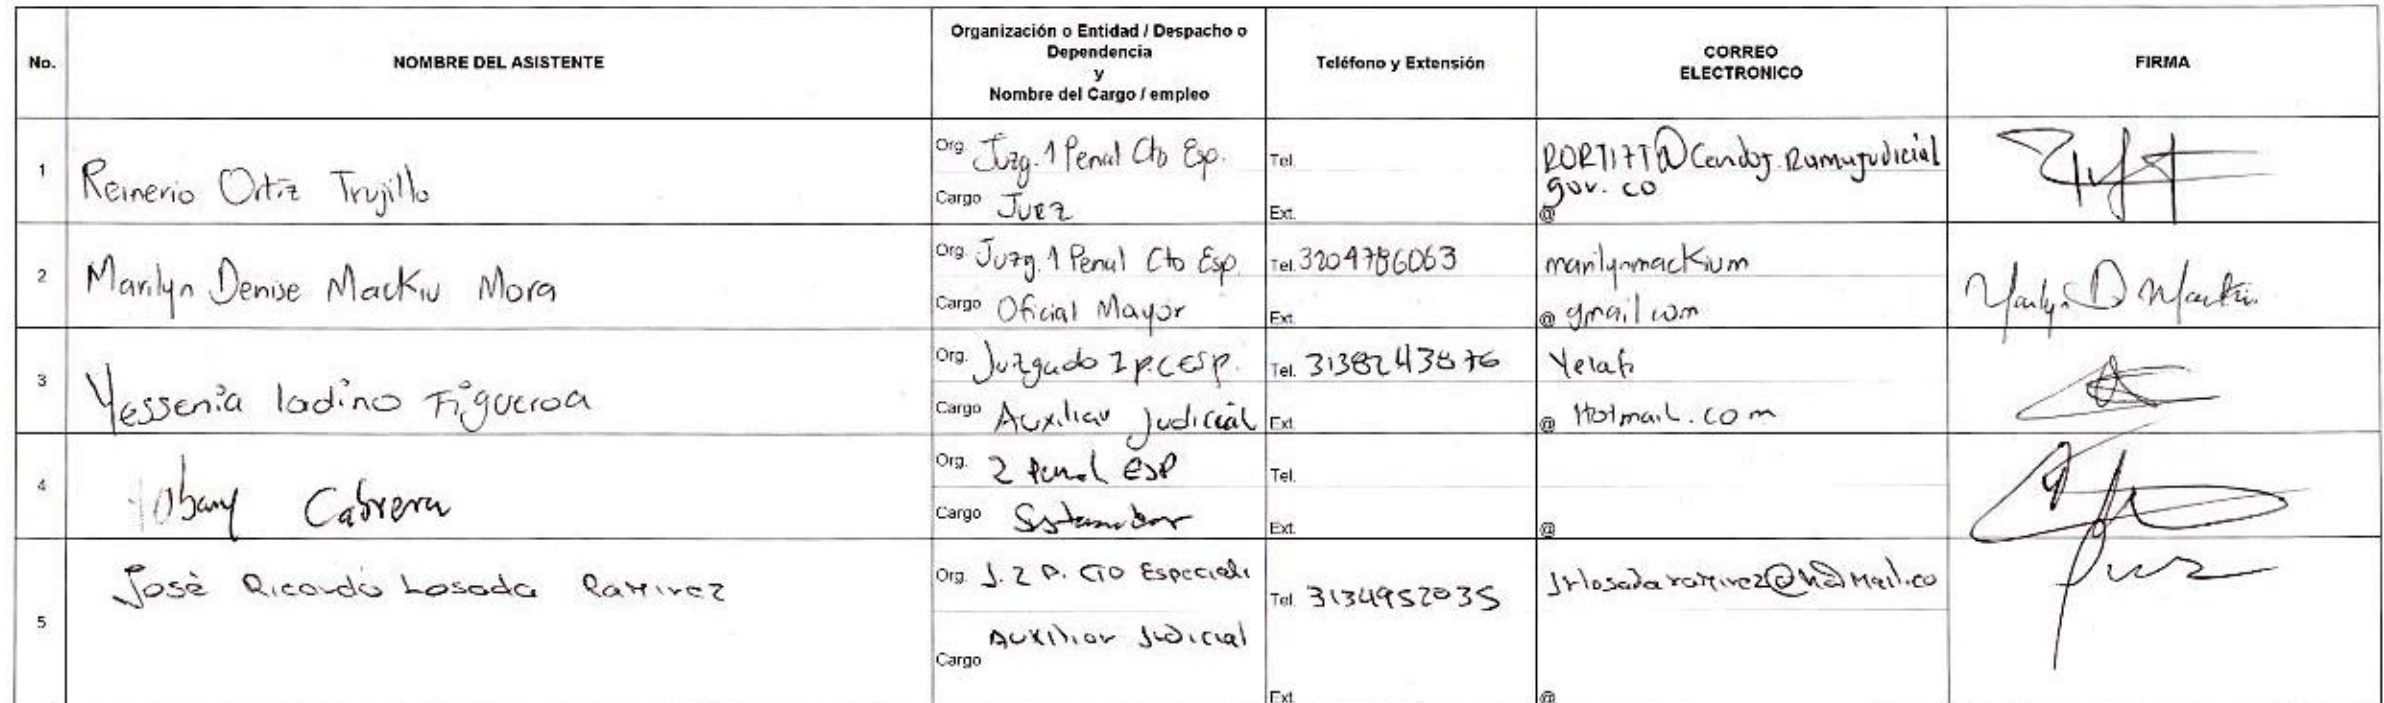 No.
NOMBRE DEL ASISTENTE
Organización o Entidad / Despacho o
Dependencia
y
Nombre del Cargo / empleo
Teléfono y Extensión
CORREO
ELECTRONICO
FIRMA
1
Reinerio Ortiz Trujillo
Org. Juzg. 1 Penal Cto Esp.
Cargo Juez
Tel.
Ext.
RORTIZT@Cendoj.Ramajudicial
gov.co
@
2
Marilyn Denise Mackiu Mora
Org. Juzg. 1 Penal Cto Esp.
Cargo Oficial Mayor
Tel. 3204786063
Ext.
marilynmackium
@ gmail com
Marilyn D Mackiu
3
Yessenia ladino Figueroa
Org. Juzgado 2 p.c ESP.
Cargo Auxiliar Judicial
Tel. 3138243876
Ext.
Yelafi
@ Hotmail.com
4
Cabrera
Org. 2 Penal ESP
Cargo Sustanciador
Tel.
Ext.
@
5
José Ricardo Losada Ramirez
Org. J. 2 P. CTO Especiali
Cargo Auxiliar Judicial
Tel. 3134952035
Ext.
Jrlosadaramirez@hotmail.co
@